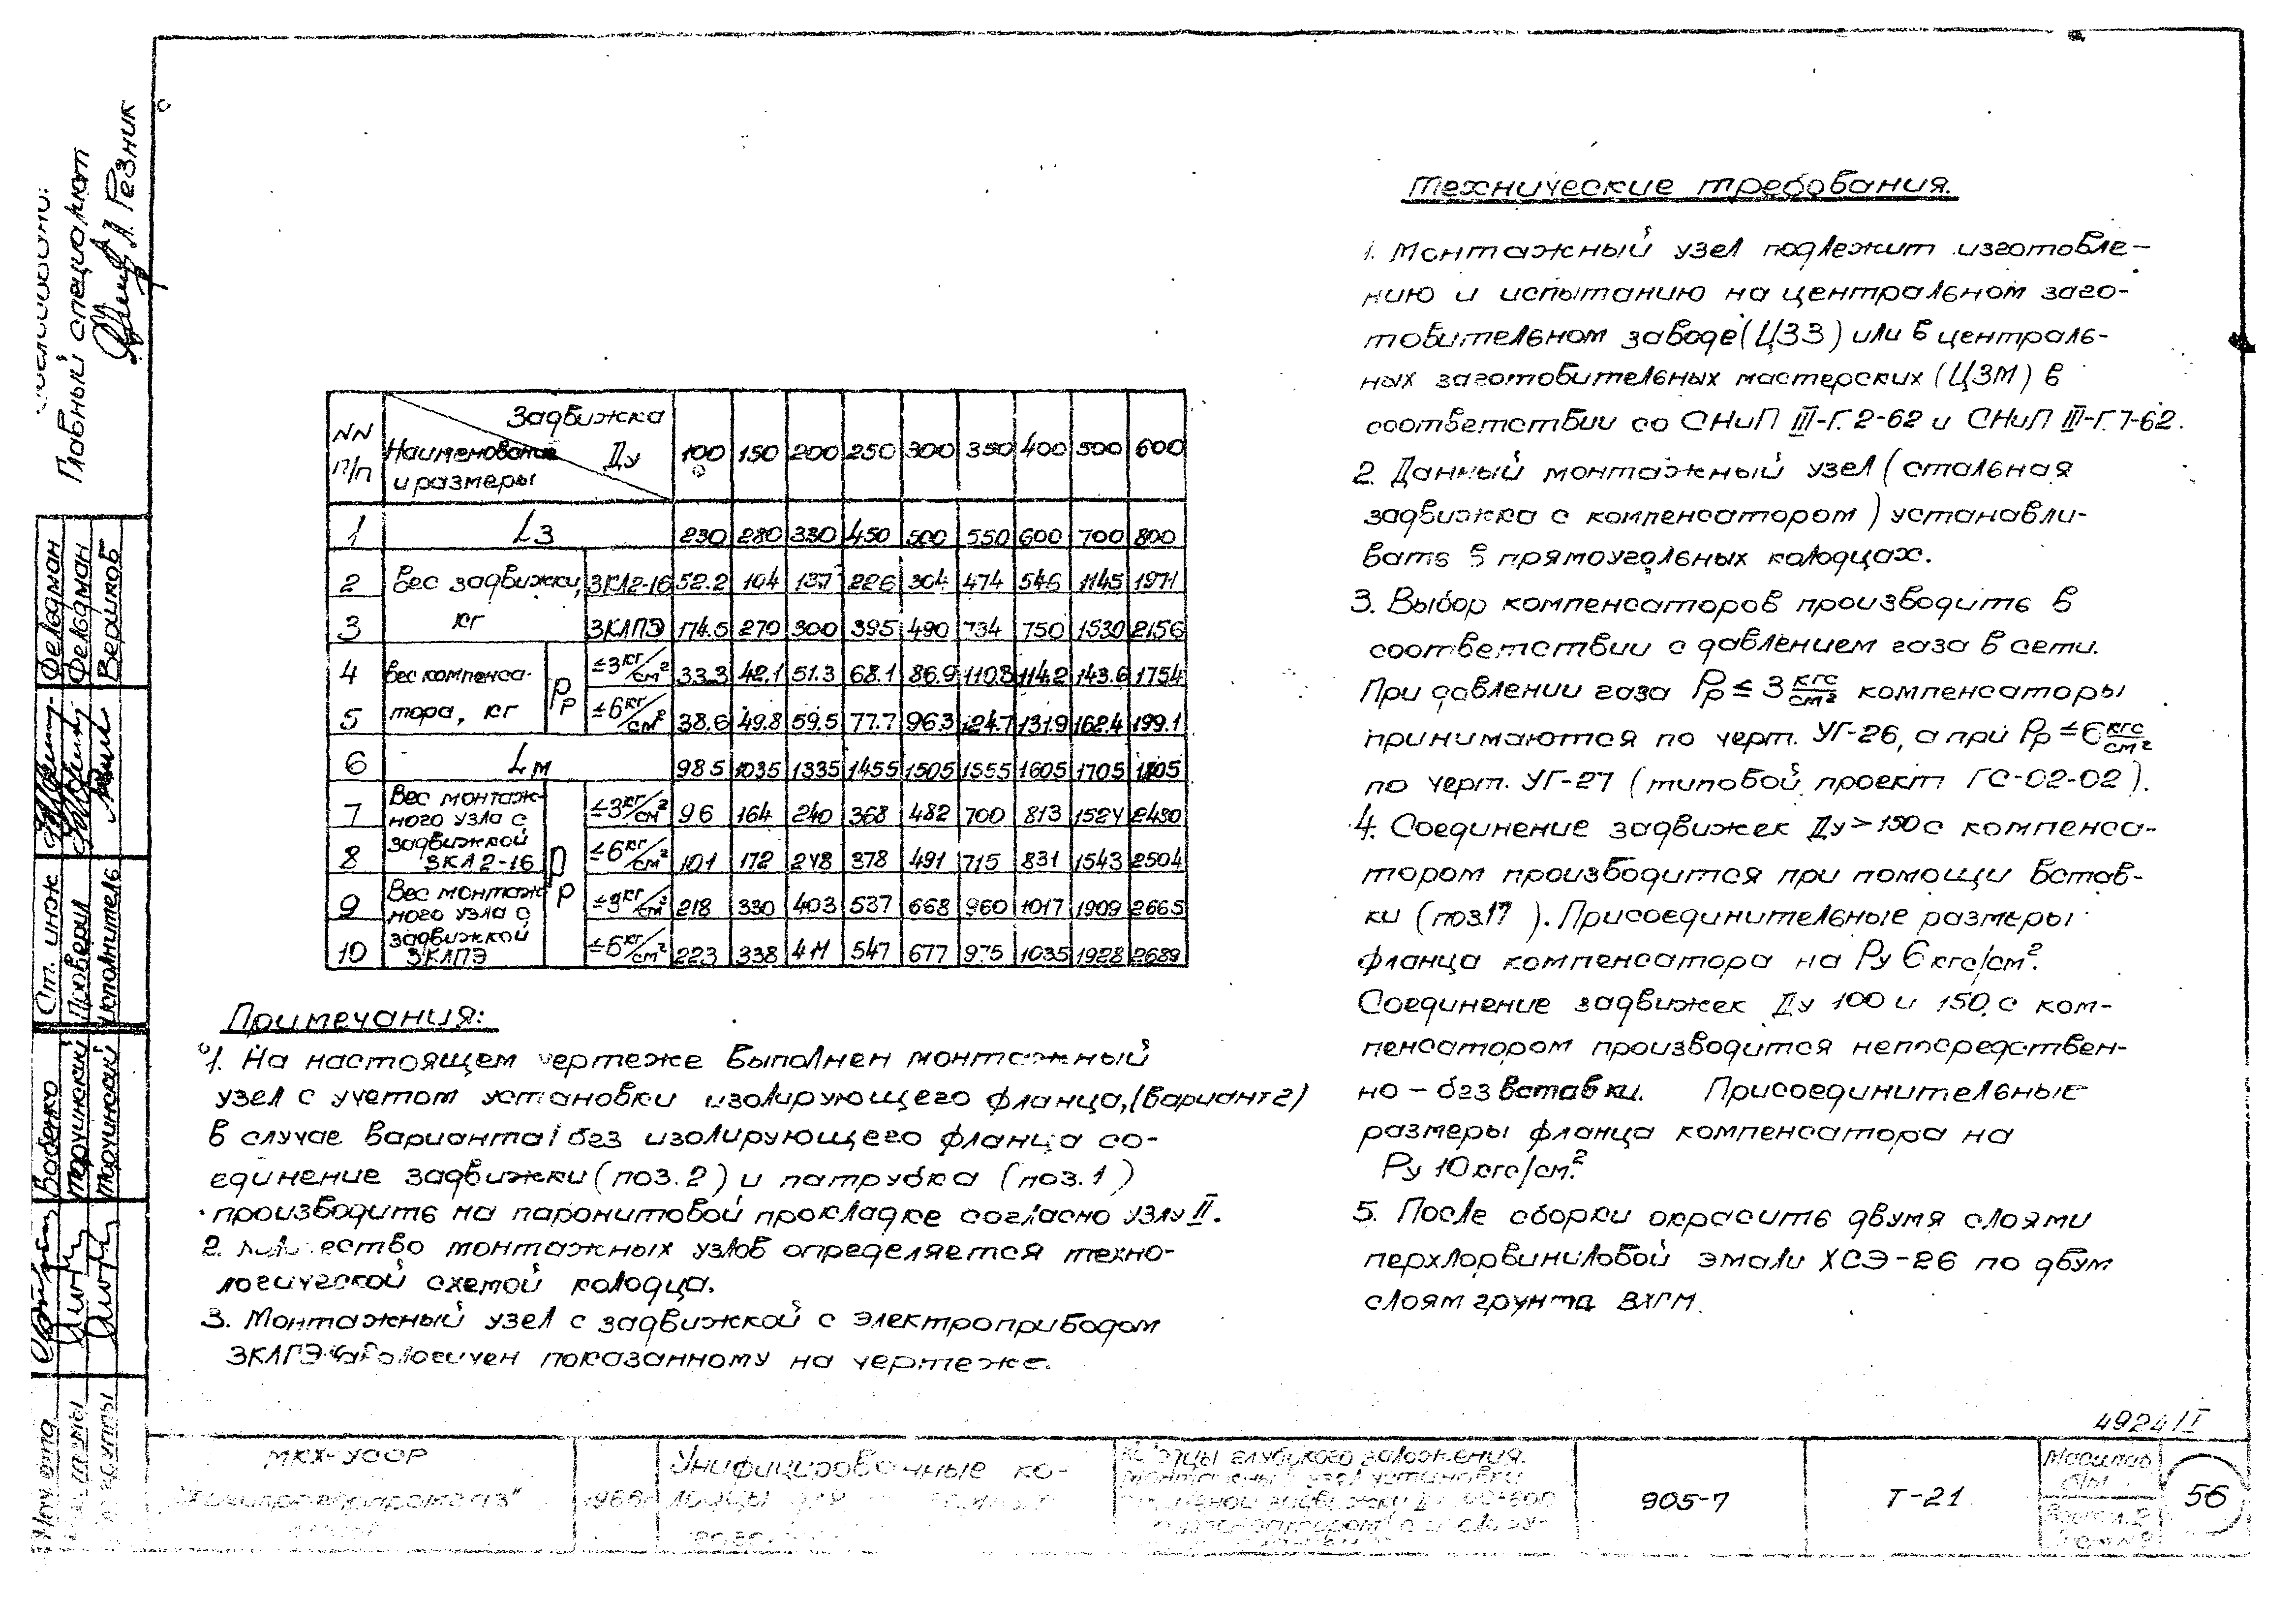 Главный специалист
А. Резник
NN п/п Задвижка Ду Наименование и размеры 100 150 200 250 300 350 400 500 600
1 Lз 230 280 330 450 500 550 600 700 800
2 Вес задвижки, кг ЗКЛ2-16 52.2 104 137 226 304 474 546 1145 1971
3 ЗКЛПЭ 174.5 270 300 395 490 734 750 1530 2156
4 Вес компенсатора, кг Pр ≤3 кг/см² 33.3 42.1 51.3 68.1 86.9 110.8 114.2 143.6 175.4
5 ≤6 кг/см² 38.6 49.8 59.5 77.7 96.3 124.7 131.9 162.4 199.1
6 Lм 985 1035 1335 1455 1505 1555 1605 1705 1805
7 Вес монтажного узла с задвижкой ЗКЛ2-16 Pр ≤3 кг/см² 96 164 240 368 482 700 813 1524 2480
8 ≤6 кг/см² 101 172 248 378 491 715 831 1543 2504
9 Вес монтажного узла с задвижкой ЗКЛПЭ ≤3 кг/см² 218 330 403 537 668 960 1017 1909 2665
10 ≤6 кг/см² 223 338 411 547 677 975 1035 1928 2689
Примечания:
1. На настоящем чертеже выполнен монтажный
узел с учетом установки изолирующего фланца, (вариант 2)
в случае варианта 1 без изолирующего фланца со-
единение задвижки (поз. 2) и патрубка (поз. 1)
производить на паронитовой прокладке согласно узлу II.
2. монтажных узлов определяется техно-
логической схемой колодца.
3. Монтажный узел с задвижкой с электроприводом
ЗКЛПЭ аналогичен показанному на чертеже.
Технические требования.
1. Монтажный узел подлежит изготовле-
нию и испытанию на центральном заго-
товительном заводе (ЦЗЗ) или в централь-
ных заготовительных мастерских (ЦЗМ) в
соответствии со СНиП III-Г.2-62 и СНиП III-Г.7-62.
2. Данный монтажный узел (стальная
задвижка с компенсатором) устанавли-
вать в прямоугольных колодцах.
3. Выбор компенсаторов производить в
соответствии с давлением газа в сети.
При давлении газа Pр ≤ 3 кгс/см² компенсаторы
принимаются по черт. УГ-26, а при Pр ≤ 6 кгс/см²
по черт. УГ-27 (типовой проект ГС-02-02).
4. Соединение задвижек Ду > 150 с компенса-
тором производится при помощи встав-
ки (поз. 17). Присоединительные размеры
фланца компенсатора на Ру 6 кгс/см².
Соединение задвижек Ду 100 и 150 с ком-
пенсатором производится непосредствен-
но – без вставки. Присоединительные
размеры фланца компенсатора на
Ру 10 кгс/см².
5. После сборки окрасить двумя слоями
перхлорвиниловой эмали ХСЭ-26 по двум
слоям грунта ВХГМ.
Ст. инж Фельдман
Проверил Фельдман
Исполнитель Вершков
Бабенко
Торчинский
Торчинский
4924/I
МКХ-УССР
1966г
Унифицированные ко-
лодцы для
глубокого заложения.
Монтажный узел установки
905-7
Т-21
Масштаб
б/м
56